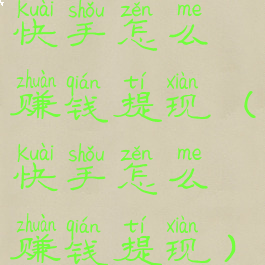 kuài shǒu zěn me
快手怎么
zhuàn qián tí xiàn
赚钱提现（
kuài shǒu zěn me
快手怎么
zhuàn qián tí xiàn
赚钱提现）